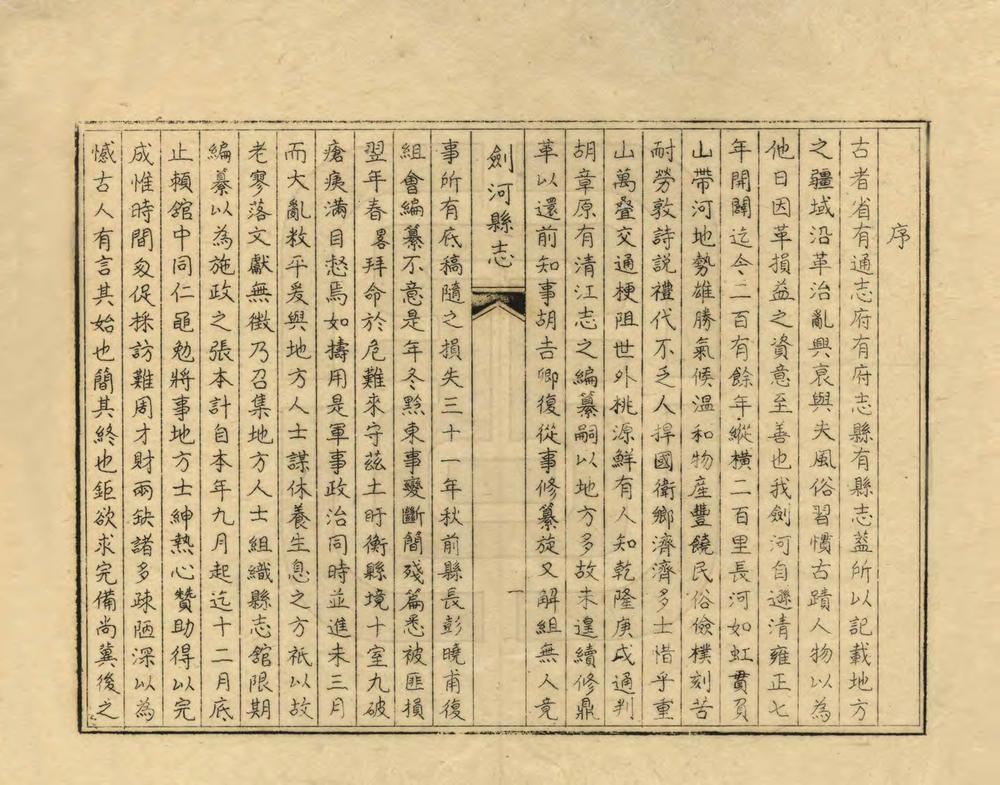 序
古者省有通志府有府志縣有縣志葢所以記載地方
之疆域沿革治亂興衰與夫風俗習慣古蹟人物以為
他日因革損益之資意至善也我劍河自遜清雍正七
年開闢迄今二百有餘年縱横二百里長河如虹貫負
山帶河地勢雄勝氣候温和物産豐饒民俗儉樸刻苦
耐勞敦詩説禮代不乏人捍國衛鄉濟濟多士惜乎重
山萬疊交通梗阻世外桃源鮮有人知乾隆庚戌通判
胡章原有清江志之編纂嗣以地方多故未遑續修鼎
革以還前知事胡吉卿復從事修纂旋又解組無人竟
劍河縣志
一
事所有底稿隨之損失三十一年秋前縣長彭曉甫復
組會編纂不意是年冬黔東事變斷簡殘篇悉被匪損
翌年春畧拜命於危難來守茲土盱衡縣境十室九破
瘡痍滿目惄焉如擣用是軍事政治同時並進未三月
而大亂敉平爰與地方人士謀休養生息之方祇以故
老寥落文獻無徴乃召集地方人士組織縣志舘限期
編纂以為施政之張本計自本年九月起迄十二月底
止頼舘中同仁黽勉將事地方士紳熱心贊助得以完
成惟時間匆促採訪難周才財兩缺諸多疎陋深以為
憾古人有言其始也簡其終也鉅欲求完備尚冀後之